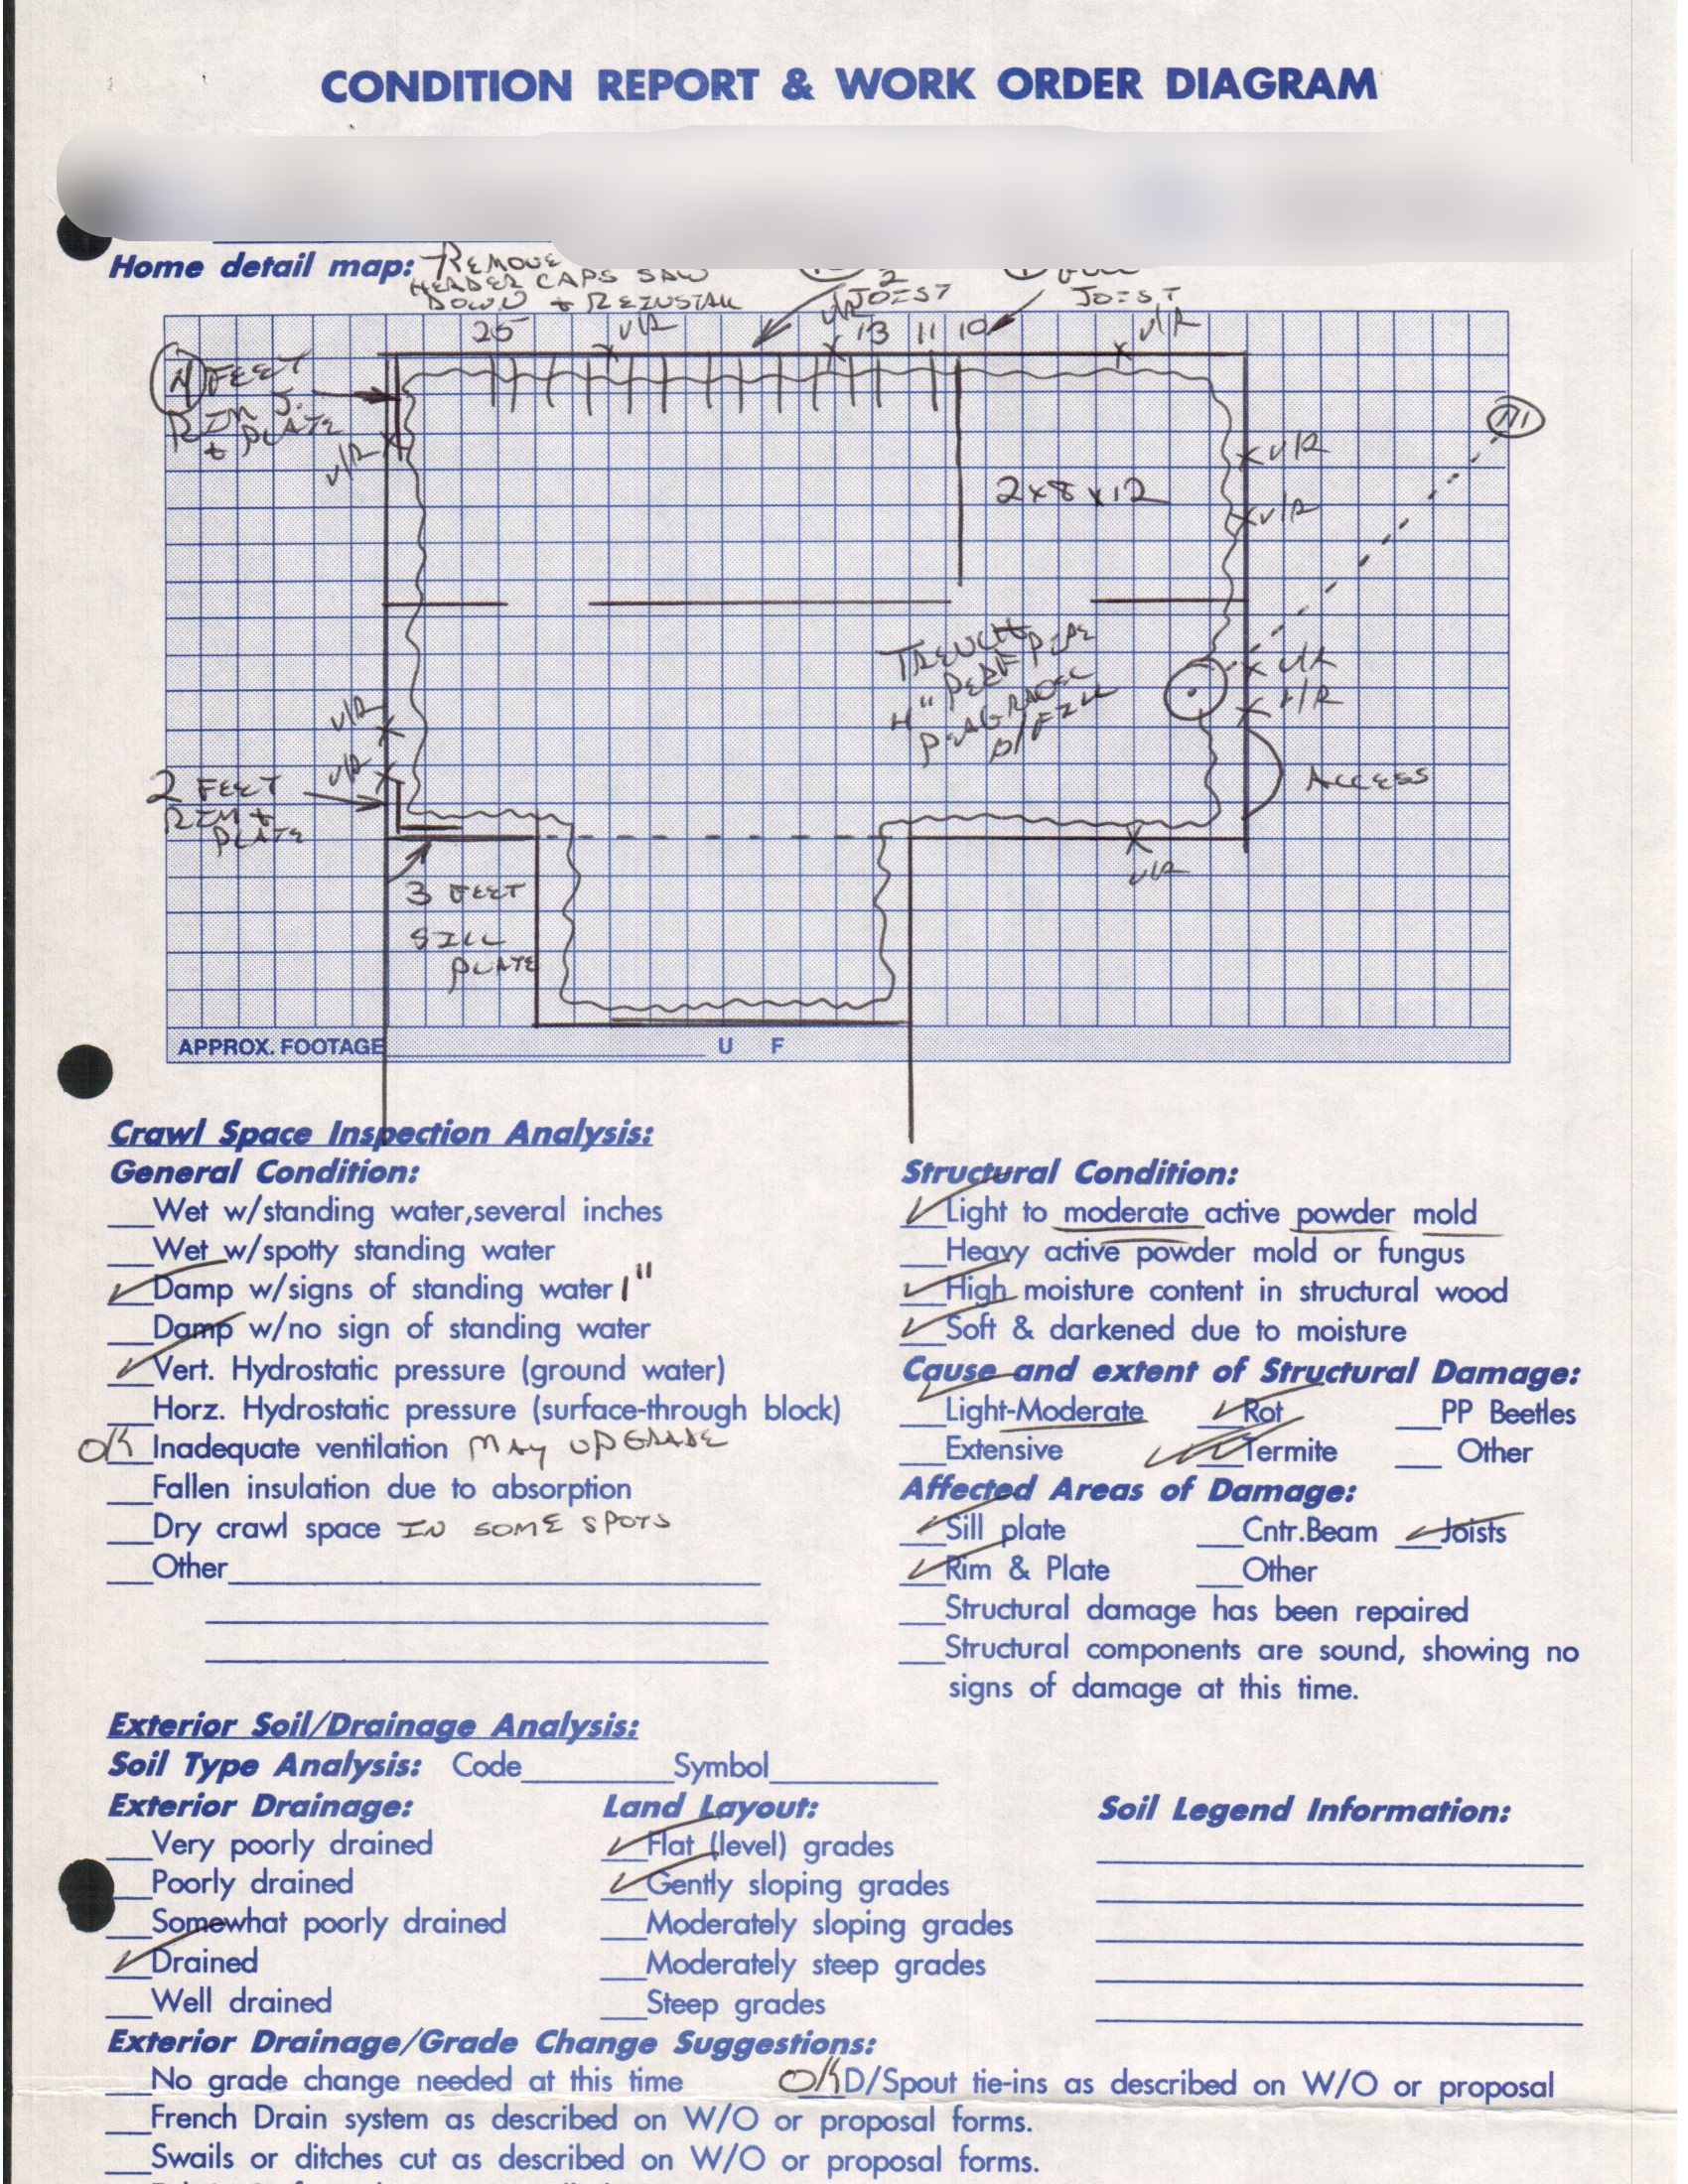 CONDITION REPORT & WORK ORDER DIAGRAM
Home detail map: REMOVE
HEADER CAPS SAW
DOWN & REINSTALL
2
JOIST
JOIST
25 V/R V/R 13 11 10 V/R
4 FEET
RIM J.
& PLATE
V/R
2x8x12
V/R
V/R
TRENCH
4" PERF PIPE
PEAGRAVEL
B/FILL
V/R
V/R
V/R
V/R
ACCESS
2 FEET
RIM &
PLATE
V/R
3 FEET
SILL
PLATE
APPROX. FOOTAGE U F
Crawl Space Inspection Analysis:
General Condition:
Wet w/standing water,several inches
Wet w/spotty standing water
Damp w/signs of standing water 1"
Damp w/no sign of standing water
Vert. Hydrostatic pressure (ground water)
Horz. Hydrostatic pressure (surface-through block)
OK Inadequate ventilation MAY UPGRADE
Fallen insulation due to absorption
Dry crawl space IN SOME SPOTS
Other
Structural Condition:
Light to moderate active powder mold
Heavy active powder mold or fungus
High moisture content in structural wood
Soft & darkened due to moisture
Cause and extent of Structural Damage:
Light-Moderate Rot PP Beetles
Extensive Termite Other
Affected Areas of Damage:
Sill plate Cntr.Beam Joists
Rim & Plate Other
Structural damage has been repaired
Structural components are sound, showing no
signs of damage at this time.
Exterior Soil/Drainage Analysis:
Soil Type Analysis: Code Symbol
Exterior Drainage:
Very poorly drained
Poorly drained
Somewhat poorly drained
Drained
Well drained
Land Layout:
Flat (level) grades
Gently sloping grades
Moderately sloping grades
Moderately steep grades
Steep grades
Soil Legend Information:
Exterior Drainage/Grade Change Suggestions:
No grade change needed at this time OK D/Spout tie-ins as described on W/O or proposal
French Drain system as described on W/O or proposal forms.
Swails or ditches cut as described on W/O or proposal forms.